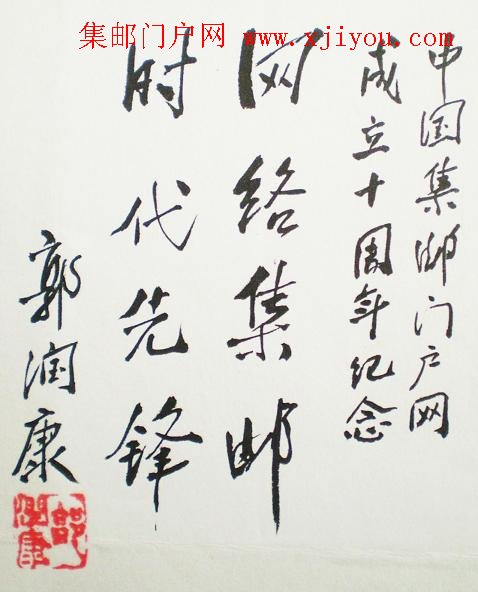 集邮门户网 www.xjiyou.com
中国集邮门户网
成立十周年纪念
网络集邮
时代先锋
郭润康
郭润康